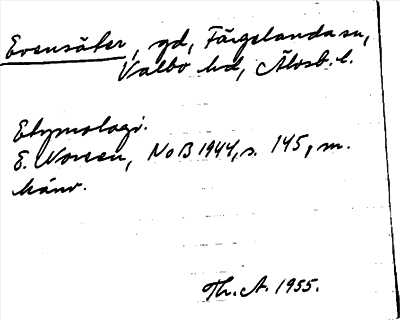 Evensäter, gd, Färgelanda sn,
Valbo hd, Älvsb. l.
Etymologi.
E. Noreen, NoB 1944, s. 145, m.
hänv.
Th. A. 1955.